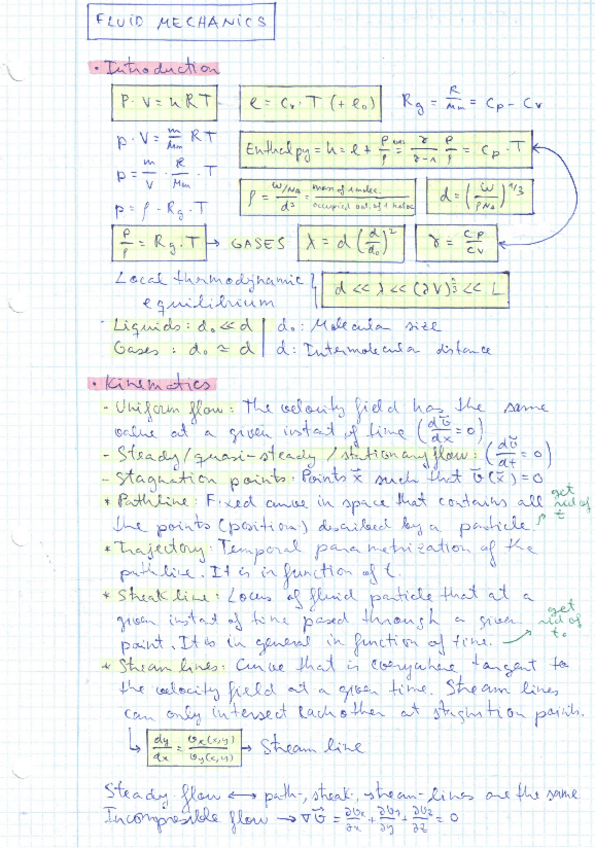 FLUID MECHANICS
• Introduction
P·V = nRT   e = Cv·T (+e₀)   Rg = R/Mm = Cp - Cv
p·V = m/Mm RT   Enthalpy = h = e + P/ρ = γ/γ-1 P/ρ = Cp·T
p = m/V · R/Mm · T   ρ = W/NA / d³ = mass of 1 molec. / occupied vol. of 1 molec   d = (W/ρNA)^1/3
p = ρ·Rg·T
P/ρ = Rg·T → GASES   λ = d (d/d₀)²   γ = Cp/Cv
Local thermodynamic
equilibrium   d << λ << (∂V)^1/3 << L
- Liquids: d₀ ≪ d | d₀: Molecular size
Gases: d₀ ≃ d | d: Intermolecular distance
• Kinematics
- Uniform flow: The velocity field has the same
value at a given instant of time (dv̄/dx = 0)
- Steady/quasi-steady/stationary flow: (dv̄/dt = 0)
- Stagnation points: Points x̄ such that v̄(x̄) = 0
* Pathline: Fixed curve in space that contains all get rid of t
the points (position) described by a particle
* Trajectory: Temporal parametrization of the
pathline. It is in function of t.
* Streak line: Locus of fluid particle that at a
given instat of time pased through a given
point. It is in general in function of time. → get rid of t₀
* Stream lines: Curve that is everywhere tangent to
the velocity field at a given time. Stream lines
can only intersect eachother at stagnation points.
↳ dy/dx = vx(x,y)/vy(x,y) → Stream line
Steady flow ⟷ path-, streak-, stream-lines are the same
Incompresible flow → ∇v̄ = ∂vx/∂x + ∂vy/∂y + ∂vz/∂z = 0